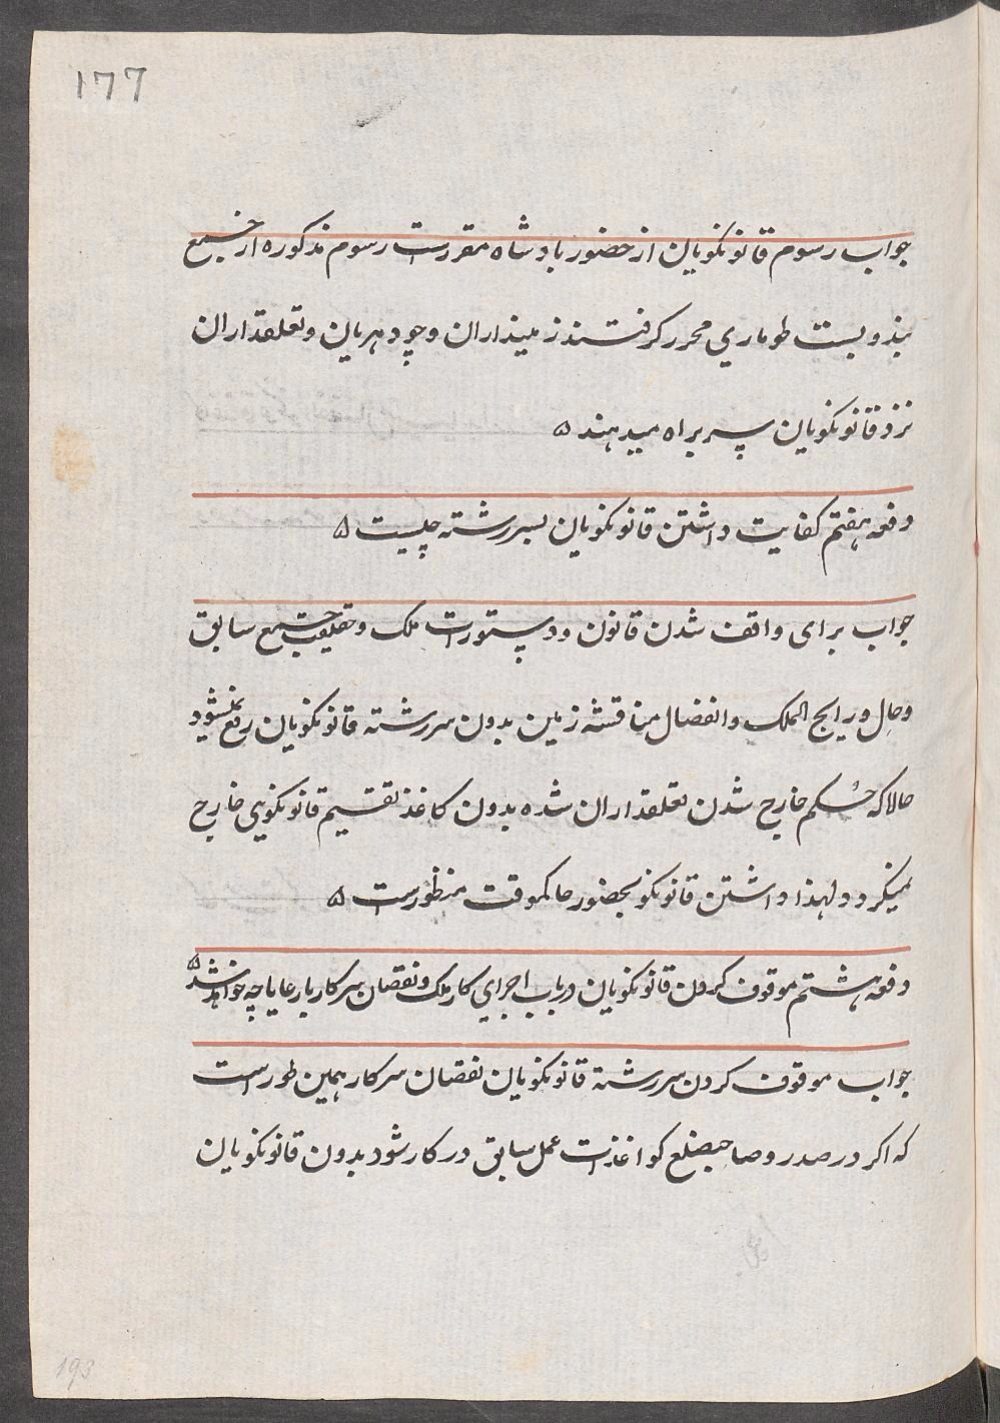 ۱۷۷
جواب رسوم قانونگویان از حضور بادشاه مقررست رسوم مذکوره از جمیع
بندوبست طوماری محرر گرفتند زمینداران و چودهریان و تعلقداران
نزد قانونگویان سربراه میدهند ۵
دفعه هفتم کفایت داشتن قانونگویان بسررشته چیست ۵
جواب برای واقف شدن قانون و دستورات ملک و حقیقت جمیع سابق
و حال و رایج الملک و انفصال مناقشه زمین بدون سررشته قانونگویان رفع نمیشود
حالا که حکم خارج شدن تعلقداران شده بدون کاغذ تقسیم قانونگویی خارج
نمیگردد لهذا داشتن قانونگو بحضور حاکموقت منظورست ۵
دفعه هشتم موقوف کردن قانونگویان درباب اجرای کار ملک و نقصان سرکار یا رعایا چه خواهد شد ۵
جواب موقوف کردن سررشته قانونگویان نقصان سرکار همین طورست
که اکر در صدر و صاحبضلع کواغذات عمل سابق در کار شود بدون قانونگویان
193